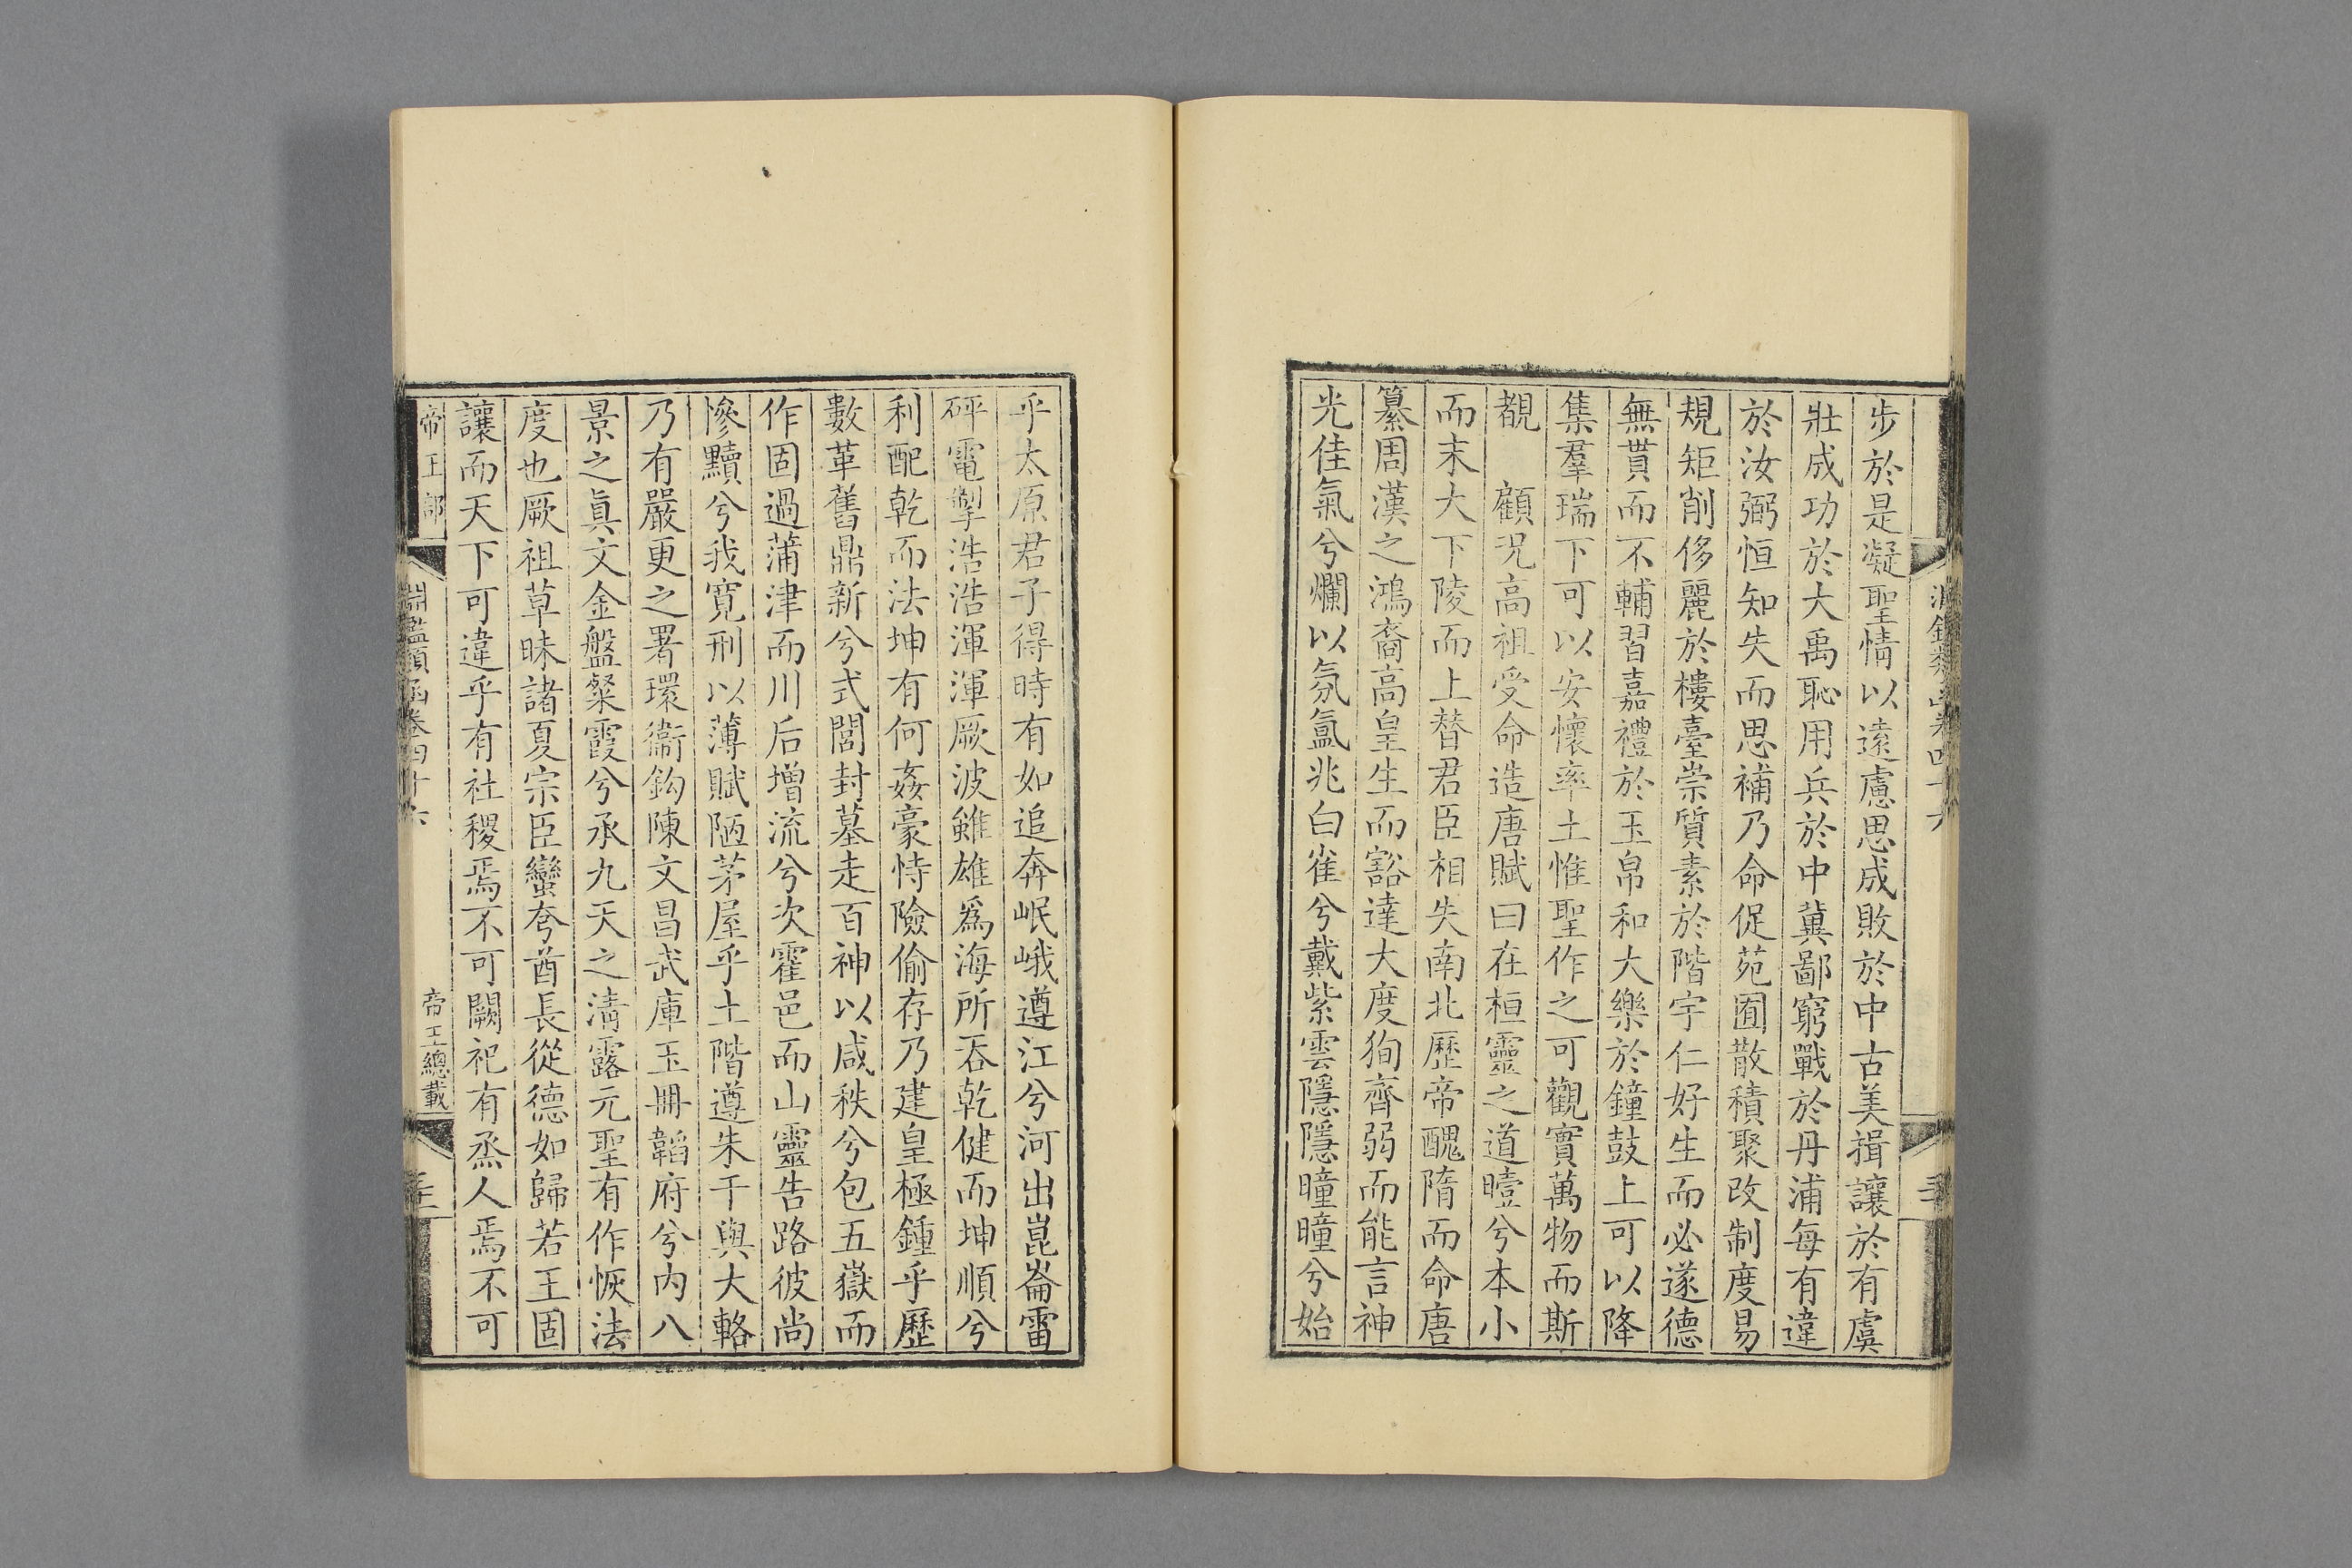 步於是凝聖情以遠慮思成敗於中古美揖讓於有虞
壯成功於大禹恥用兵於中冀鄙窮戰於丹浦每有違
於汝弼恒知失而思補乃命促苑囿散積聚改制度易
規矩削侈麗於樓臺崇質素於階宇仁好生而必遂德
無貰而不輔習嘉禮於玉帛和大樂於鐘鼓上可以降
集羣瑞下可以安懷率土惟聖作之可觀實萬物而斯
覩　顧況高祖受命造唐賦曰在桓靈之道曀兮本小
而末大下陵而上替君臣相失南北歷帝醜隋而命唐
纂周漢之鴻裔高皇生而豁達大度狥齊弱而能言神
光佳氣兮爛以氛氳兆白雀兮戴紫雲隱隱曈曈兮始
乎太原君子得時有如追奔岷峨遵江兮河出崑崙雷
砰電掣浩浩渾渾厥波雖雄爲海所吞乾健而坤順兮
利配乾而法坤有何姦豪恃險偷存乃建皇極鍾乎歷
數革舊鼎新兮式閭封墓走百神以咸秩兮包五嶽而
作固過蒲津而川后增流兮次霍邑而山靈告路彼尚
慘黷兮我寬刑以薄賦陋茅屋乎土階遵朱干與大輅
乃有嚴更之署環衞鈎陳文昌武庫玉冊韜府兮内八
景之眞文金盤粲霞兮承九天之清露元聖有作恢法
度也厥祖草昧諸夏宗臣蠻夸酋長從德如歸若王固
讓而天下可違乎有社稷焉不可闕祀有烝人焉不可
帝王部
淵鑑類函卷四十六
帝王總載